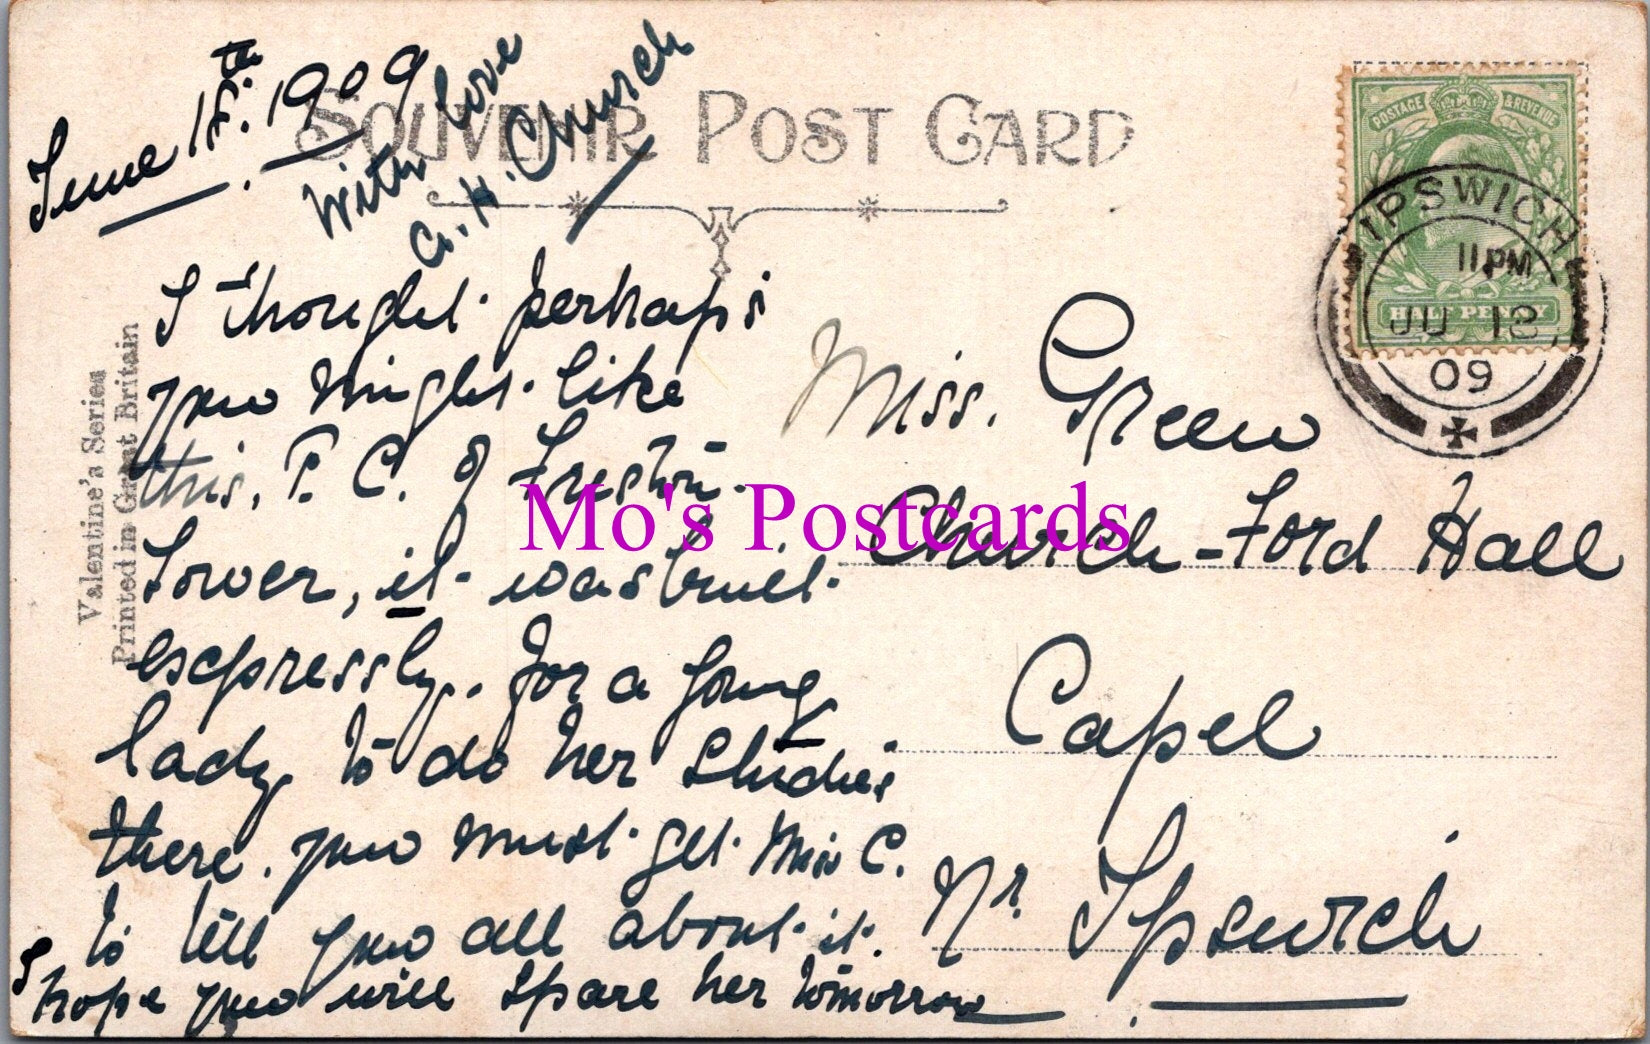 June 18th. 1909
With love
G. H. Church
SOUVENIR POST CARD
POSTAGE & REVENUE
HALFPENNY
IPSWICH
11 PM
JU 18
09
Valentine's Series
Printed in Great Britain
I thought perhap's
you might like
this, P. C. of Freston
Tower, it was built
expressly. for a young
lady to do her studies
there. you must get Miss C.
to tell you all about it.
I hope you will spare her tomorrow
Miss. Green
Church-Ford Hall
Capel
Nr. Ipswich
Mo's Postcards